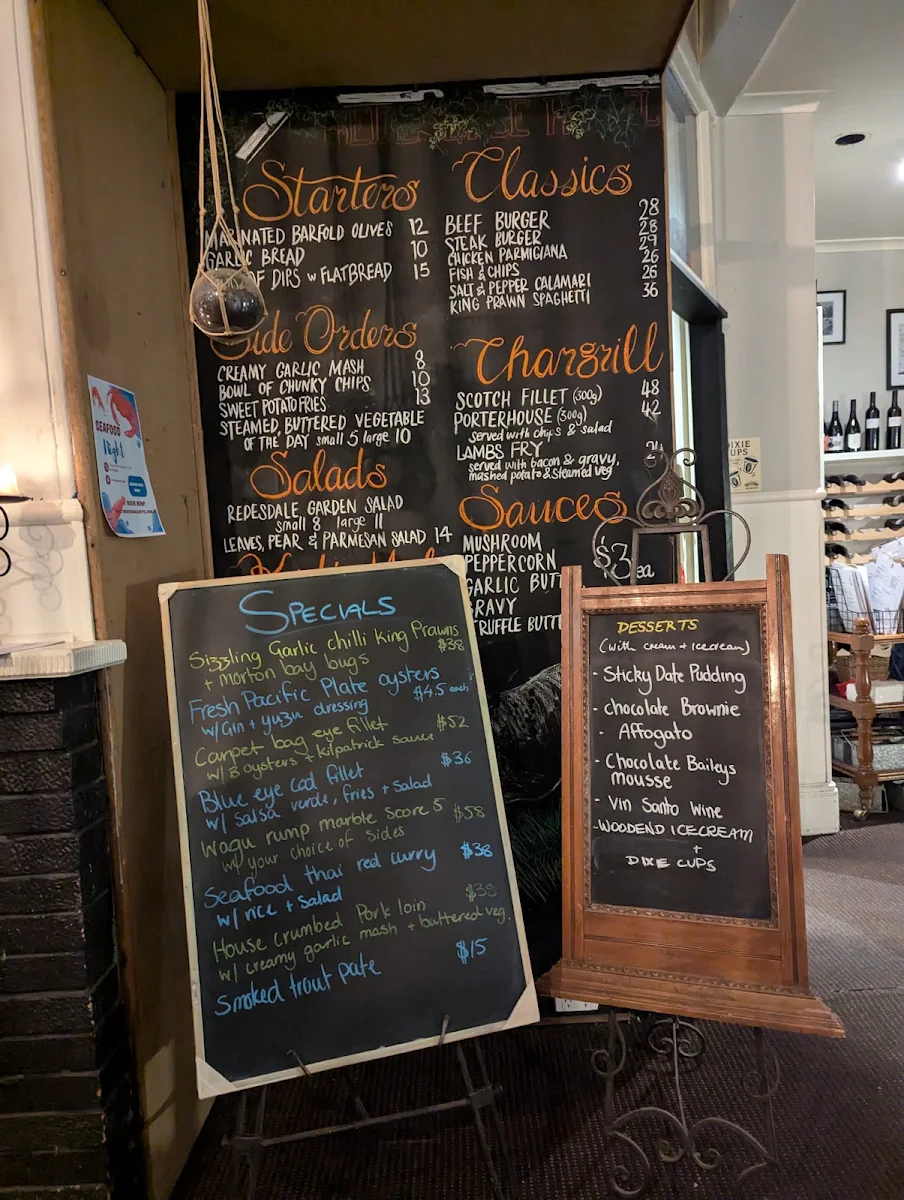 Starters
MARINATED BARFOLD OLIVES 12
GARLIC BREAD 10
OF DIPS w FLATBREAD 15
Side Orders
CREAMY GARLIC MASH 8
BOWL OF CHUNKY CHIPS 10
SWEET POTATO FRIES 13
STEAMED, BUTTERED VEGETABLE
OF THE DAY small 5 large 10
Salads
REDESDALE GARDEN SALAD
small 8 large 11
LEAVES, PEAR & PARMESAN SALAD 14
Classics
BEEF BURGER 28
STEAK BURGER 28
CHICKEN PARMIGIANA 29
FISH & CHIPS 26
SALT & PEPPER CALAMARI 26
KING PRAWN SPAGHETTI 36
Chargrill
SCOTCH FILLET (300g) 48
PORTERHOUSE (300g) 42
served with chips & salad
LAMBS FRY
served with bacon & gravy,
mashed potato & steamed veg
Sauces
MUSHROOM
PEPPERCORN $3 ea
GARLIC BUTT
GRAVY
TRUFFLE BUTT
SEAFOOD
Night
SPECIALS
Sizzling Garlic chilli king Prawns
+ morton bay bugs $38
Fresh Pacific Plate oysters
w/Gin + yuzu dressing $4.5 each
Carpet bag eye fillet $52
w/ 3 oysters + kilpatrick sauce
Blue eye cod fillet $36
w/ salsa verde, fries + salad
Wagu rump marble score 5 $58
w/ your choice of sides
Seafood thai red curry $38
w/ rice + salad
House crumbed Pork loin $38
w/ creamy garlic mash + buttered veg.
Smoked trout pate $15
DESSERTS
(with cream + icecream)
- Sticky Date Pudding
- chocolate Brownie
- Affogato
- Chocolate Baileys
mousse
- Vin Santo Wine
- WOODEND ICECREAM
+
DIXIE CUPS
DIXIE
CUPS